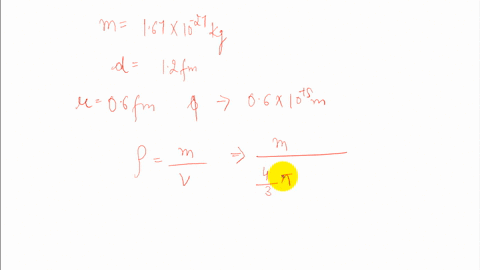 m = 1.67 × 10⁻²⁷ kg
d = 1.2 fm
r = 0.6 fm ⇒ 0.6 × 10⁻¹⁵ m
ρ = m/V ⇒ m/(4/3 π